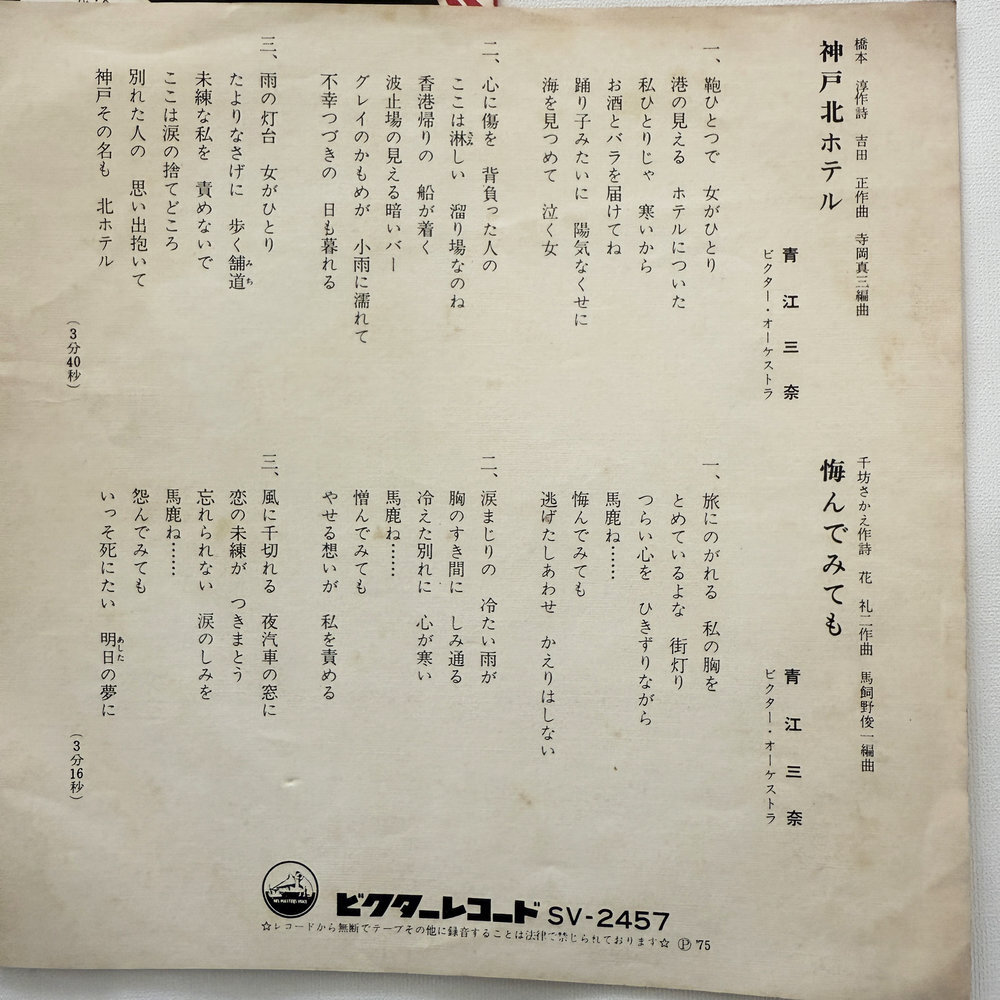 橋本 淳作詩 吉田 正作曲 寺岡真三編曲
神戸北ホテル
青江三奈
ビクター・オーケストラ
一、鞄ひとつで 女がひとり
港の見える ホテルについた
私ひとりじゃ 寒いから
お酒とバラを届けてね
踊り子みたいに 陽気なくせに
海を見つめて 泣く女
二、心に傷を 背負った人の
ここは淋しい 溜り場なのね
香港帰りの 船が着く
波止場の見える暗いバー
グレイのかもめが 小雨に濡れて
不幸つづきの 日も暮れる
三、雨の灯台 女がひとり
たよりなさげに 歩く舗道
みち
未練な私を 責めないで
ここは涙の捨てどころ
別れた人の 思い出抱いて
神戸その名も 北ホテル
(3分40秒)
千坊さかえ作詩 花 礼二作曲 馬飼野俊一編曲
悔んでみても
青江三奈
ビクター・オーケストラ
一、旅にのがれる 私の胸を
とめているよな 街灯り
つらい心を ひきずりながら
馬鹿ね……
悔んでみても
逃げたしあわせ かえりはしない
二、涙まじりの 冷たい雨が
胸のすき間に しみ通る
冷えた別れに 心が寒い
馬鹿ね……
憎んでみても
やせる想いが 私を責める
三、風に千切れる 夜汽車の窓に
恋の未練が つきまとう
忘れられない 涙のしみを
馬鹿ね……
怨んでみても
いっそ死にたい 明日の夢に
あした
(3分16秒)
ビクターレコード SV-2457
☆レコードから無断でテープその他に録音することは法律で禁じられております☆ Ⓟ '75